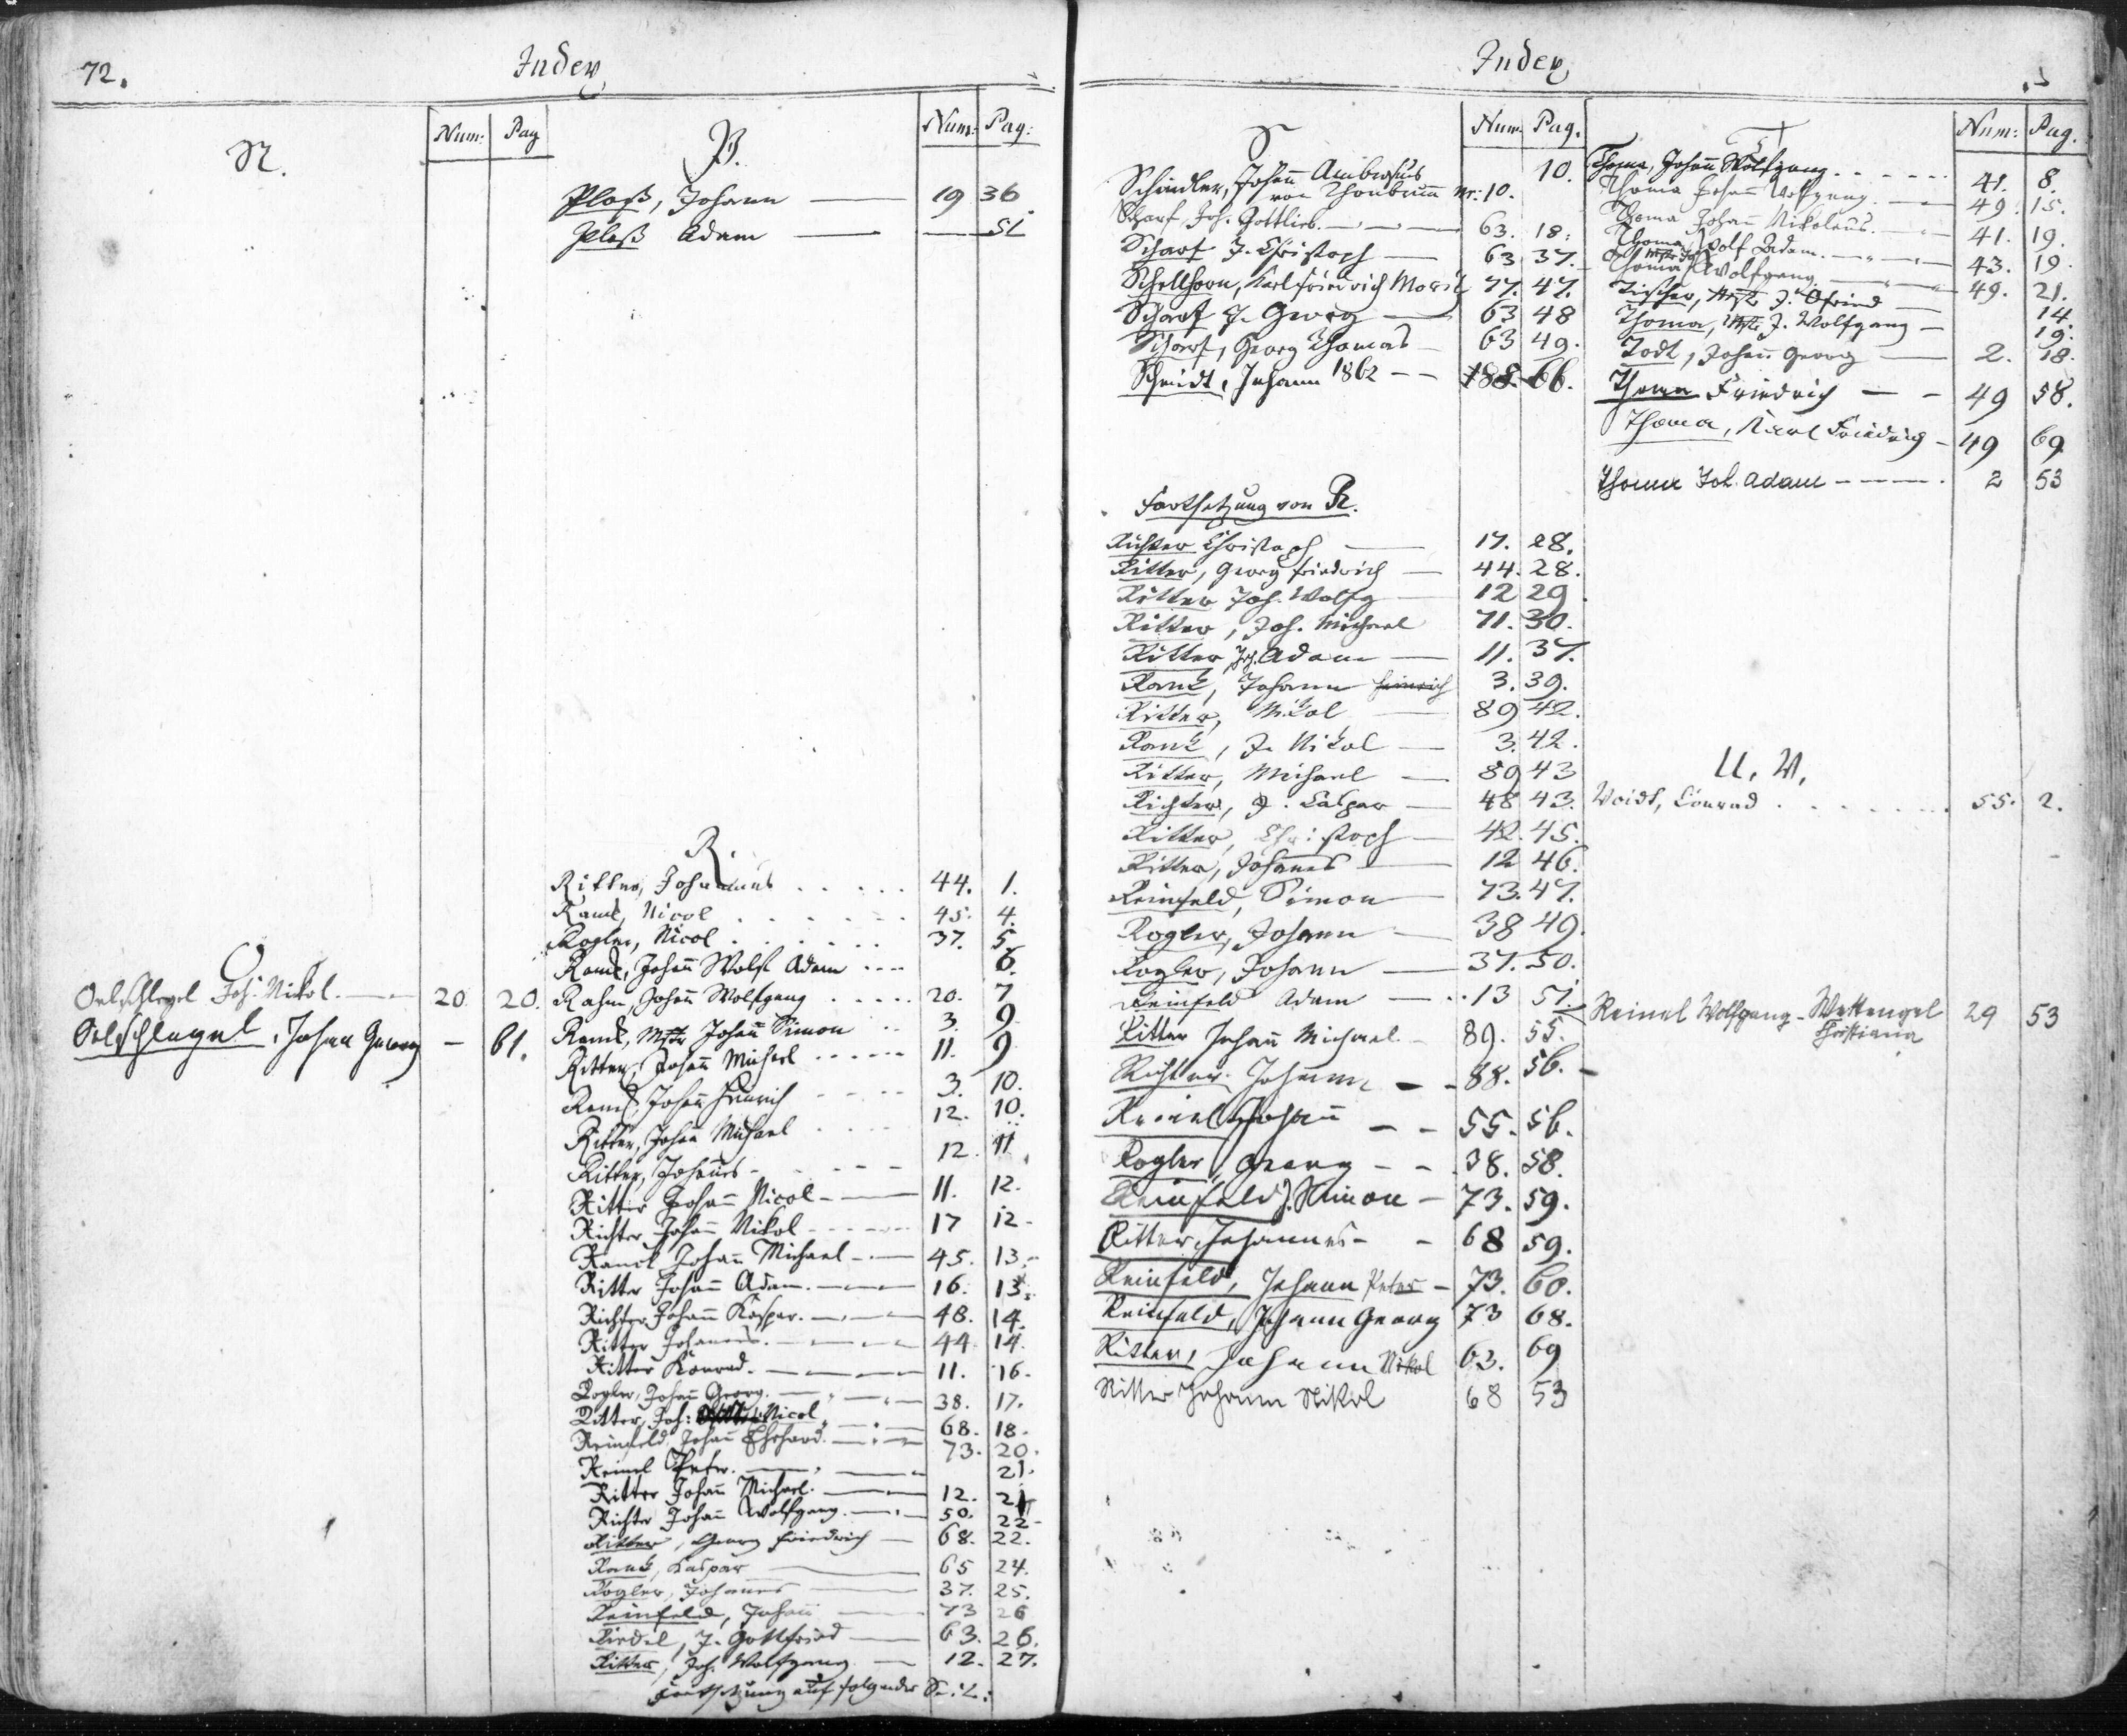 72.
Index
N.
Num: Pag
O
Oelschlegel Joh. Nikol. 20 20.
Oelschlegel, Johann Georg — 61.
P.
Num: Pag:
Ploß, Johann 19 36
Ploß Adam — 51
R.
Ritter, Johannes 44. 1.
Rank, Nicol 45. 4.
Rogler, Nicol 37. 5
Rank, Johañ Wolf Adam 6.
Rahm, Johañ Wolfgang 20. 7
Rank, Mstr Johañ Simon 3. 9
Ritter, Johañ Michael 11. 9
Rank, Johañ Heinrich 3. 10.
Ritter, Johañ Michael 12. 10.
Ritter, Johañes 12. 11
Ritter Johañ Nicol 11. 12.
Richter Johañ Nikol 17 12.
Ranck Johañ Michael 45. 13.
Ritter Johañ Adam. 16. 13.
Richter Johañ Kaspar. 48. 14.
Ritter Johannes. 44 14.
Ritter Konrad. 11. 16.
Rogler, Johañ Georg. 38. 17.
Ritter, Joh: Nicol 68. 18.
Reinfeld Johañ Erhard. 73. 20.
Reinel Peter. 21.
Ritter Johañ Michael. 12. 21
Richter Johañ Wolfgang. 50. 22
Ritter, Georg Friedrich 68. 22.
Rank, Kaspar 65 24.
Rogler, Johannes 37. 25.
Reinfeld, Johañ 73 26
Riedel, J. Gottfried 63. 26.
Ritter, Joh. Wolfgang 12. 27.
Fortsetzung auf folgender Seite:
Index
S
Num: Pag.
Schindler, Johañ Ambrosius 10.
von Thonbrunn Nr: 10.
Scharf, Joh. Gottlieb. 63. 18.
Scharf J. Christoph 63 37.
Schellhorn, Karl Friedrich Moritz 77. 47.
Scharf J. Georg 63 48
Scharf, Georg Thomas 63 49.
Schmidt, Johann 1862 188. 66.
Fortsetzung von R.
Richter Christoph 17. 28.
Ritter, Georg Friedrich 44. 28.
Ritter Joh. Wolfg 12 29
Ritter, Joh. Michael 71. 30.
Ritter Joh. Adam 11. 37.
Rank, Johann Heinrich 3. 39.
Ritter, Nikol 89 42.
Rank, J. Nikol 3. 42.
Ritter, Michael 89 43
Richter, J. Caspar 48 43.
Ritter, Christoph 42. 45.
Ritter, Johannes 12 46.
Reinfeld, Simon 73. 47.
Rogler, Johann 38 49.
Rogler, Johann 37. 50.
Reinfeld Adam 13 51.
Ritter Johañ Michael 89. 55.
Richter Johann 88. 56.
Reinel Johañ 55. 56.
Rogler, Georg 38. 58.
Reinfeld J. Simon 73. 59.
Ritter, Johannes 68 59.
Reinfeld, Johann Peter 73. 60.
Reinfeld, Johann Georg 73 68.
Ritter, Johann Nikol 63. 69
Ritter Johann Nikol 68 53
T
Num: Pag.
Thoma, Johañ Wolfgang 41. 8.
Thoma Johañ Wolfgang. 49. 15.
Thoma Johañ Nikolaus. 41. 19.
Thoma Wolf Adam. 43. 19.
Thoma Wolfgang 49. 21.
Tischer, Mstr J. 14.
Thoma, Mstr J. Wolfgang 19.
Todt, Johañ Georg 2. 18.
Thoma Friedrich 49 58.
Thoma, Karl Friedrich 49 69
Thoma Joh. Adam 2 53
U. V.
Voidt, Conrad 55. 2.
Reinel Wolfgang - Wettengel 29 53
Christiana